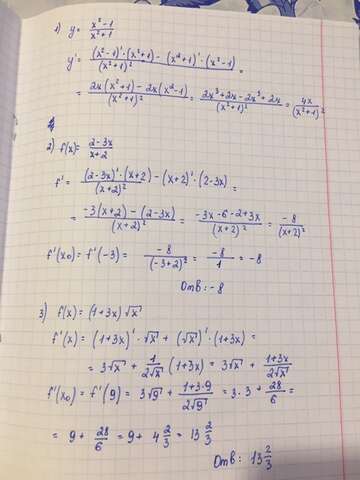 1) y = (x² - 1)/(x² + 1)
y' = ((x² - 1)' · (x² + 1) - (x² + 1)' · (x² - 1))/(x² + 1)² =
= (2x(x² + 1) - 2x(x² - 1))/(x² + 1)² = (2x³ + 2x - 2x³ + 2x)/(x² + 1)² = 4x/(x² + 1)²
2) f(x) = (2 - 3x)/(x + 2)
f' = ((2 - 3x)' · (x + 2) - (x + 2)' · (2 - 3x))/(x + 2)² =
= (-3(x + 2) - (2 - 3x))/(x + 2)² = (-3x - 6 - 2 + 3x)/(x + 2)² = -8/(x + 2)²
f'(x₀) = f'(-3) = -8/(-3 + 2)² = -8/1 = -8
Отв: -8
3) f(x) = (1 + 3x) √x
f'(x) = (1 + 3x)' · √x + (√x)' · (1 + 3x) =
= 3√x + 1/(2√x) (1 + 3x) = 3√x + (1 + 3x)/(2√x)
f'(x₀) = f'(9) = 3√9 + (1 + 3·9)/(2√9) = 3·3 + 28/6 =
= 9 + 28/6 = 9 + 4 2/3 = 13 2/3
Отв: 13 2/3